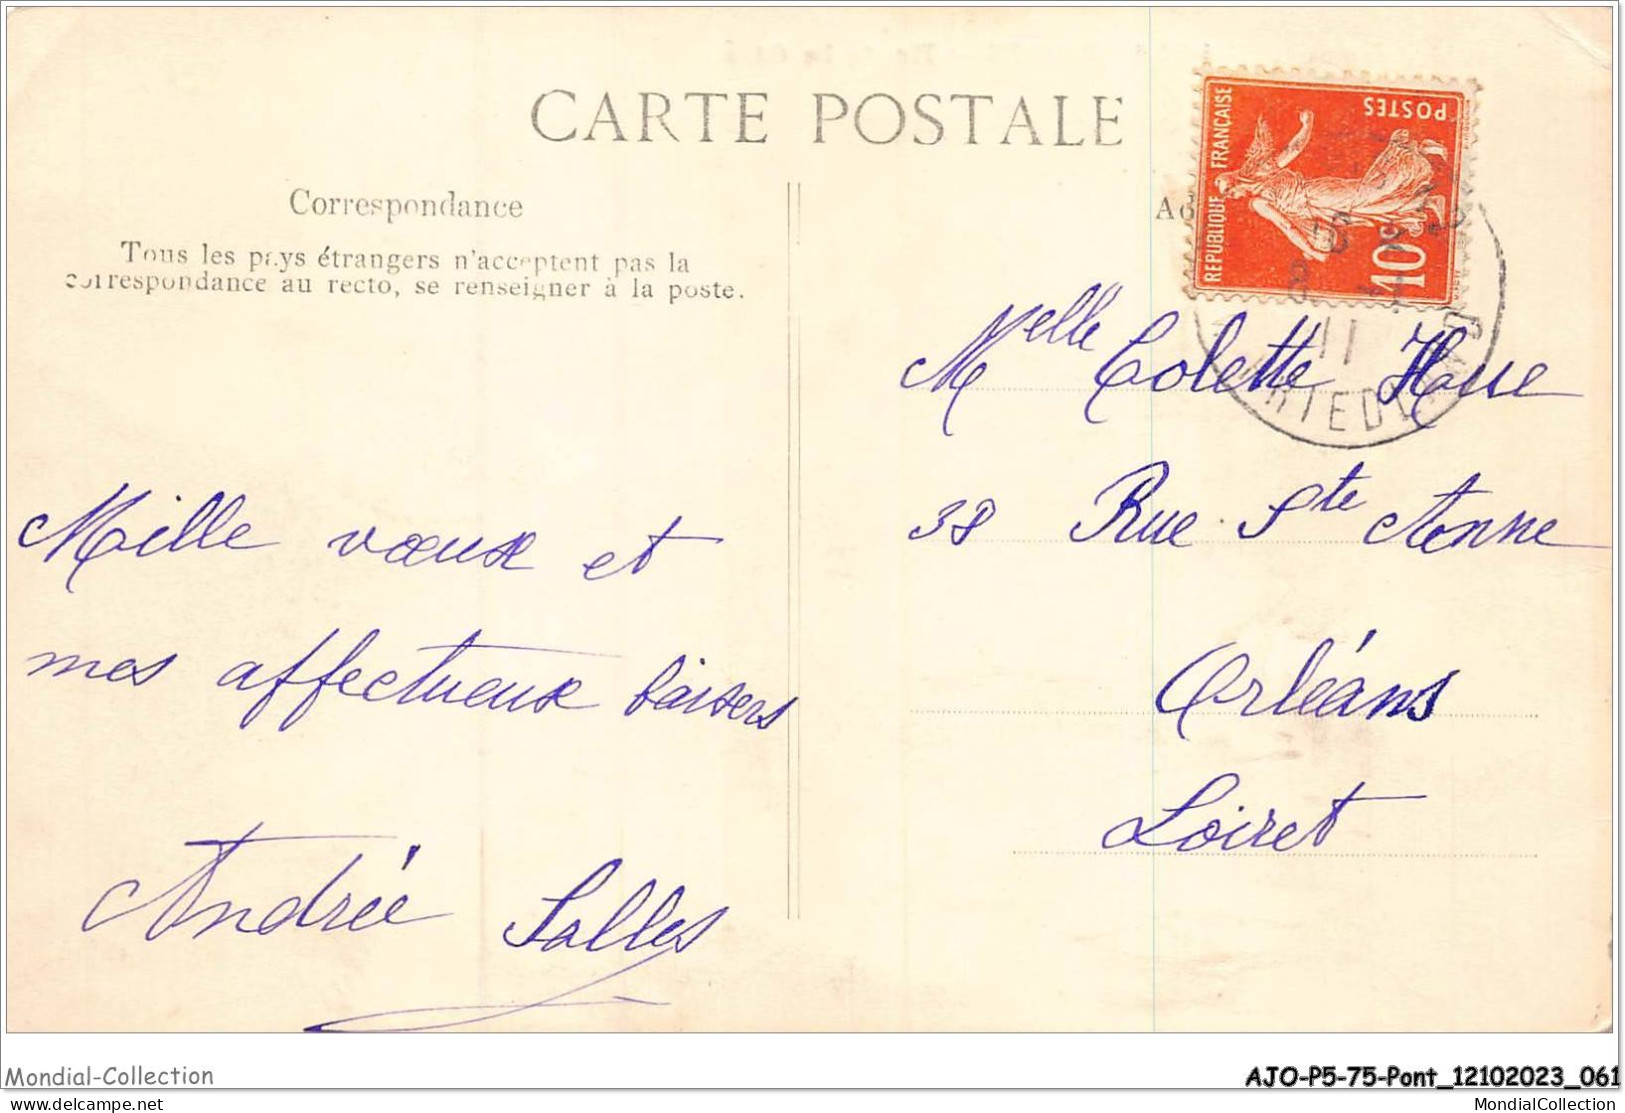 CARTE POSTALE
Correspondance
Tous les pays étrangers n'acceptent pas la
correspondance au recto, se renseigner à la poste.
Mille vœux et
mes affectueux baisers
Andrée Salles
REPUBLIQUE FRANÇAISE
POSTES
10c
11
Melle Colette Hue
38 Rue Ste Anne
Orléans
Loiret
Mondial-Collection
AJO-P5-75-Pont_12102023_061
delcampe.net
MondialCollection